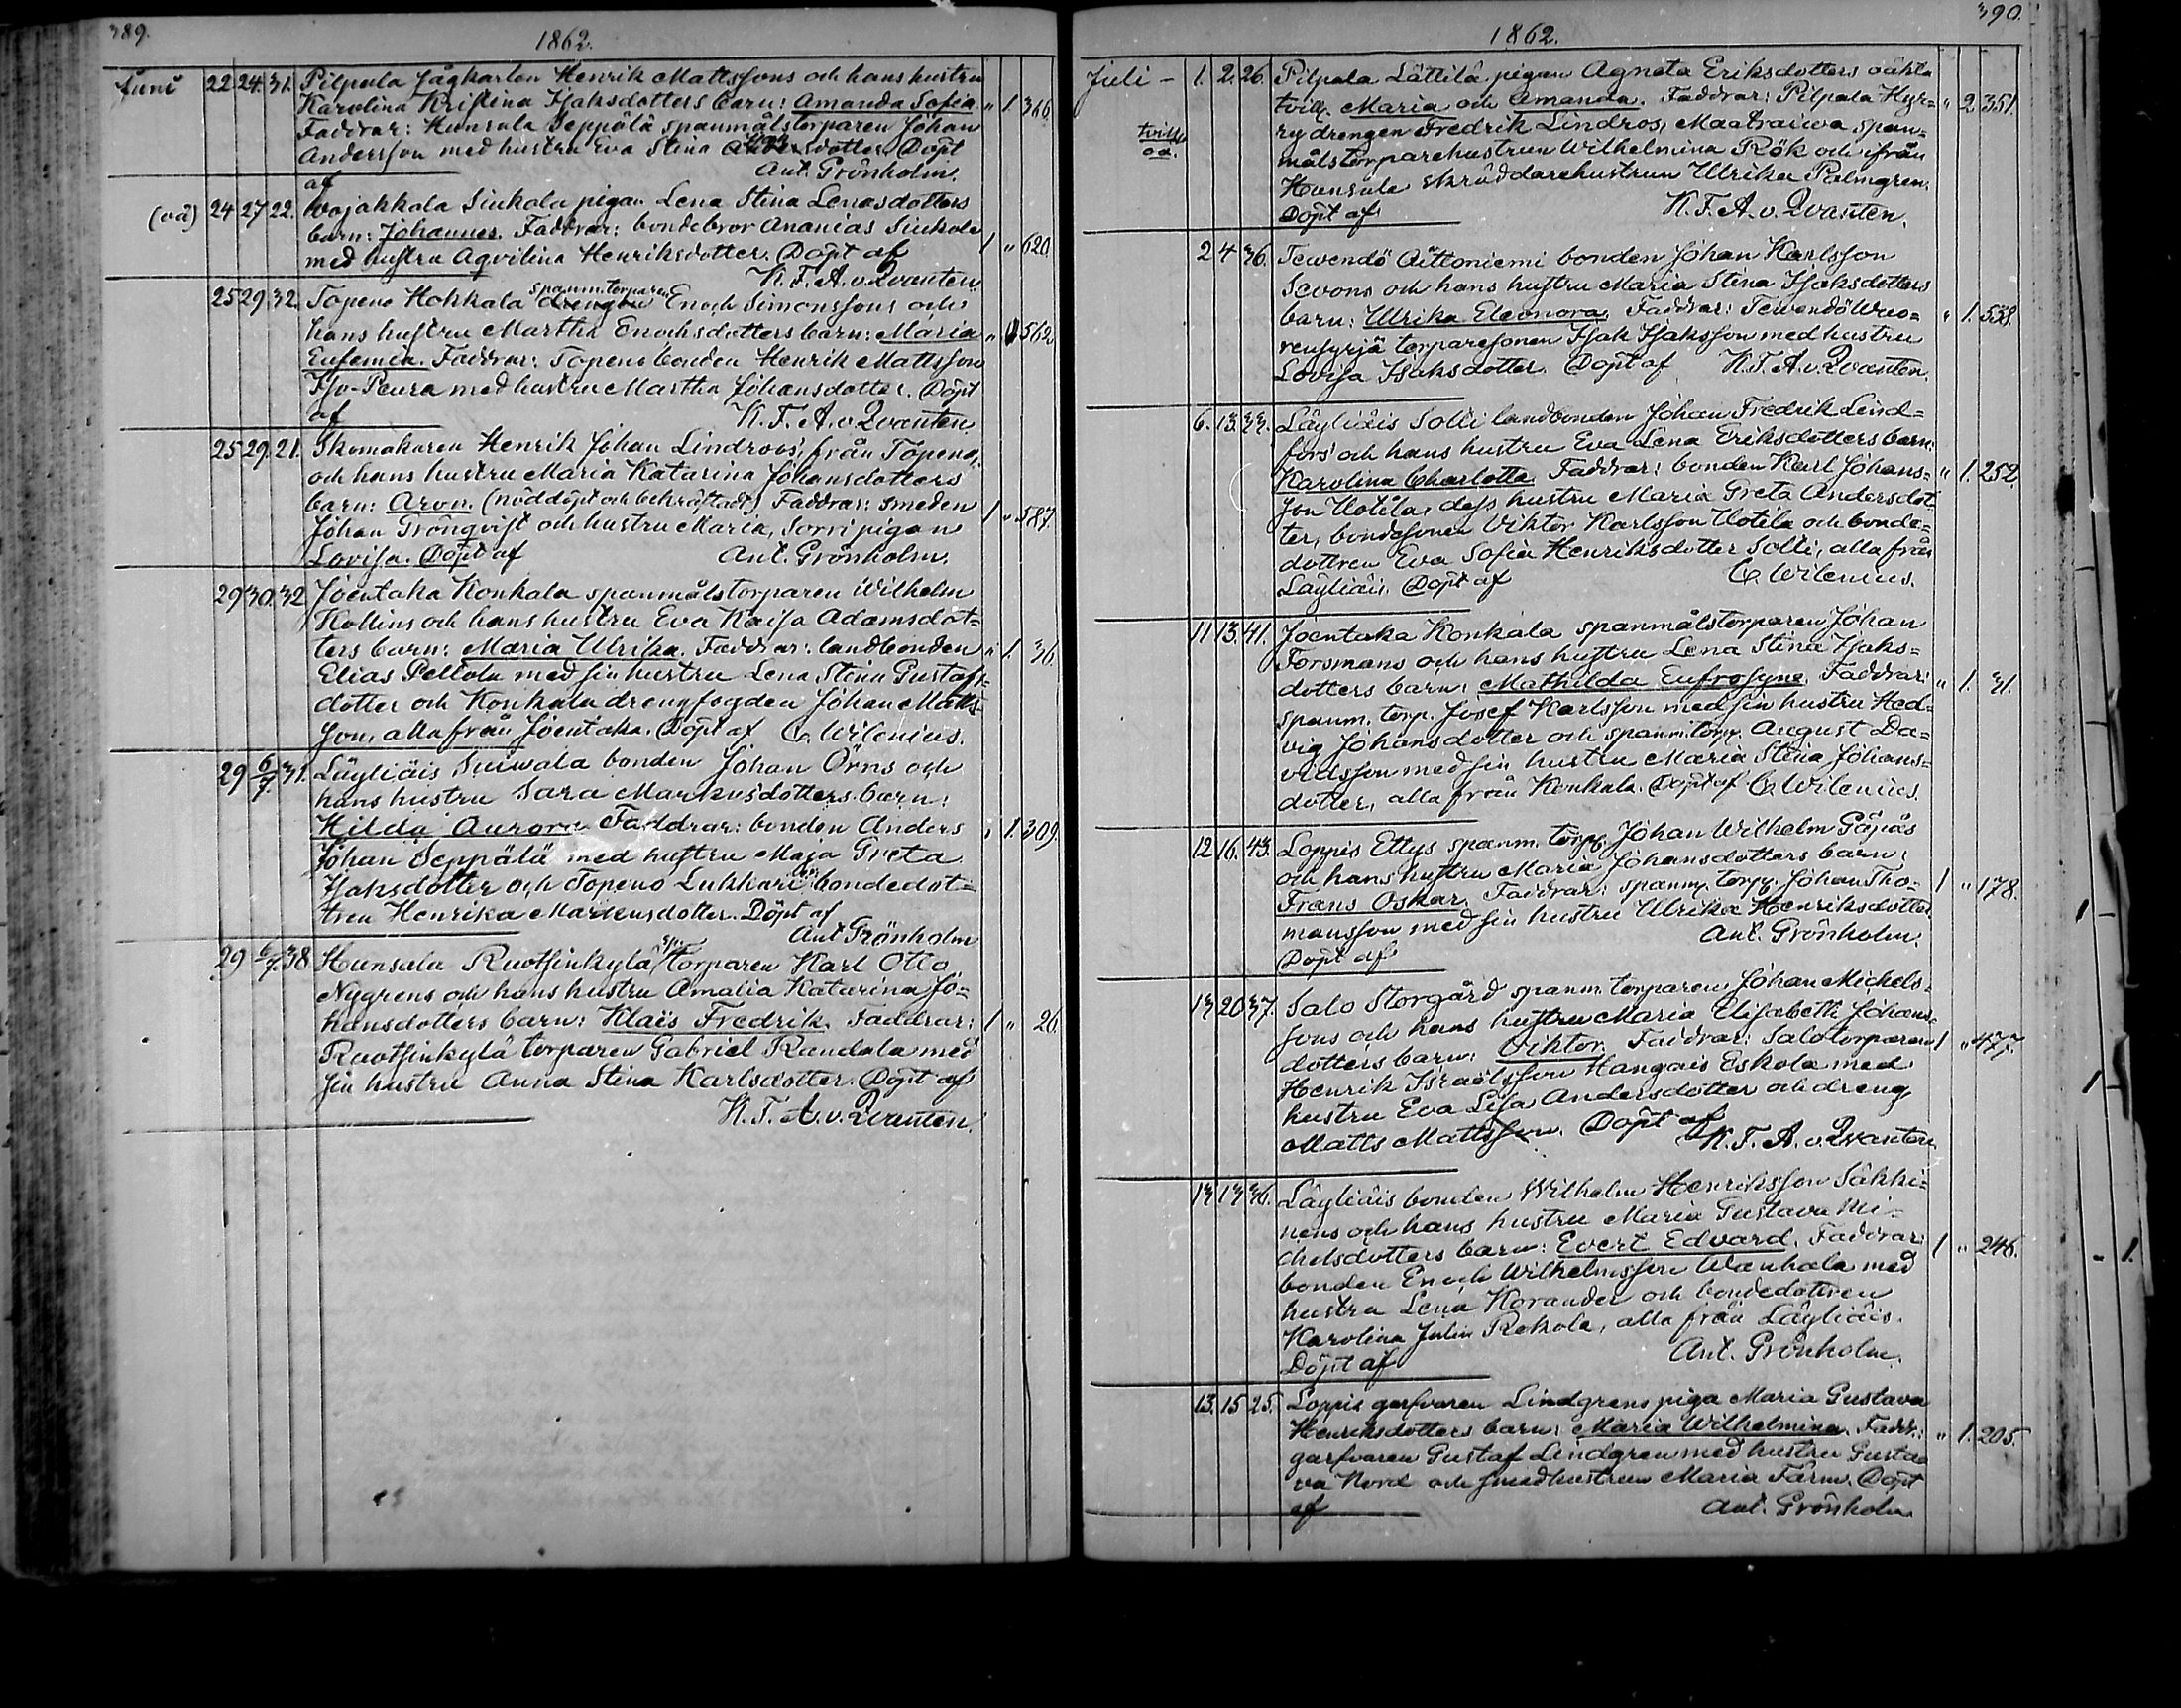 389.
1862.
Juni 22 24. 31. Pilpala Jågkarlen Henrik Mattssons och hans hustru
Karolina Kristina Isaksdotters barn: Amanda Sofia. " 1. 366.
Faddrar: Hunsala Seppälä spanmålstorparen Johan
Andersson med hustru Eva Stina dotter. Döpt
af Ant. Grönholm.
(oä) 24 27 22. Wojakkala Siukola pigan Lena Stina Lenasdotters
barn: Johannes. Faddrar: bondebror Ananias Siukola 1 " 620.
med hustru Aqvilina Henriksdotter. Döpt af
K. F. A. v. Qvanten.
spanm. torparen
25 29. 32. Topeno Hokkala drengen Enoch Simonssons och
hans hustru Martha Enochsdotters barn: Maria " 1 562.
Eufemia. Faddrar: Topeno bonden Henrik Mattsson
Iso-Peura med hustru Martha Johansdotter. Döpt
af K. F. A. v. Qvanten
25 29. 21. Skomakaren Henrik Johan Lindroos', från Topeno,
och hans hustru Maria Katarina Johansdotters
barn: Aron. (nöddöpt och bekräftadt) Faddrar: smeden
Johan Grönqvist och hustru Maria, Sorri pigan 1 " 587.
Lovisa. Döpt af Ant. Grönholm.
29 30. 32 Joentaka Konkala spanmålstorparen Wilhelm
Kollins och hans hustru Eva Kaisa Adamsdot=
ters barn: Maria Ulrika. Faddrar: landbonden " 1. 36.
Elias Pellola med sin hustru Lena Stina Gustafs=
dotter och Konkala drengfogden Johan Matts=
son, alla från Joentaka. Döpt af C. Wilenius.
29 6/7. 31. Läyliäis Suiwala bonden Johan Örns och
hans hustru Sara Markusdotters barn:
Hilda Aurora Faddrar: bonden Anders " 1. 309.
Johan Seppälä med hustru Maja Greta
Isaksdotter och Topeno Lukkari bondedot=
tren Henrika Markusdotter. Döpt af
Ant Grönholm
sp.
29 6/7. 38 Hunsala Ruotsinkylä torparen Karl Otto
Nygrens och hans hustru Amalia Katarina Jo=
hansdotters barn: Klaës Fredrik. Faddrar: 1 " 26.
Ruotsinkylä torparen Gabriel Randala med
sin hustru Anna Stina Karlsdotter. Döpt af
K. F. A. v. Qvanten.
390.
1862.
Juli – 1. 2. 26. Pilpala Lättilä pigan Agneta Eriksdotters oäkta
tvill. Maria och Amanda. Faddrar: Pilpala Hyr= " 2 351.
tvill. ry drengen Fredrik Lindros, Maatraiwa span=
oä. målstorparehustrun Wilhelmina Rök och ifrån
Hunsala skräddarehustrun Ulrika Palmgren.
Döpt af K. F. A. v. Qvanten.
2 4 36. Tewendö Aittoniemi bonden Johan Karlsson
Sevons och hans hustru Maria Stina Isaksdotters
barn: Ulrika Eleonora. Faddrar: Tewendö Wuo= " 1. 538.
rensyrjä torparesonen Isak Isaksson med hustru
Lovisa Isaksdotter. Döpt af K. F. A. v. Qvanten.
6. 13. 33. Läyliäis Solli landbonden Johan Fredrik Lind=
fors' och hans hustru Eva Lena Eriksdotters barn:
Karolina Charlotta. Faddrar: bonden Karl Johans= " 1. 252.
son Uotila, dess hustru Maria Greta Andersdot=
ter, bondesonen Viktor Karlsson Uotila och bonde=
dottren Eva Sofia Henriksdotter Solli, alla från
Läyliäis. Döpt af C. Wilenius.
11 13. 41. Joentaka Konkala spanmålstorparen Johan
Forsmans och hans hustru Lena Stina Isaks=
dotters barn: Mathilda Eufrosyne. Faddrar: " 1. 31.
spanm. torp. Josef Karlsson med sin hustru Hed=
vig Johansdotter och spanm. torp. August Da=
vidsson med sin hustru Maria Stina Johans=
dotter, alla från Konkala. Döpt af C. Wilenius.
12 16. 43. Loppis Ettys spanm. torp. Johan Wilhelm Gåpås
och hans hustru Maria Johansdotters barn:
Frans Oskar. Faddrar: spanm. torp. Johan Tho= 1 " 178.
mansson med sin hustru Ulrika Henriksdotter
Döpt af Ant. Grönholm.
13 20 37. Salo Storgård spanm. torparen Johan Michels=
sons och hans hustru Maria Elisabeth Johans=
dotters barn: Viktor. Faddrar: Salo torparen 1 " 477.
Henrik Israelsson Hangais Eskola med
hustru Eva Lisa Andersdotter och dreng
Matts Mattsson. Döpt af
K. F. A. v. Qvanten
13 13 36. Läyliäis bonden Wilhelm Henriksson Säkki=
nens och hans hustru Maria Gustava Mi=
chelsdotters barn: Evert Edvard. Faddrar: 1 " 246.
bonden Enoch Wilhelmsson Wanhala med
hustru Lena Korander och bondedottren
Karolina Julin Rekola, alla från Läyliäis.
Döpt af Ant. Grönholm.
13. 15 25. Loppis garfvaren Lindgrens piga Maria Gustava
Henriksdotters barn: Maria Wilhelmina. Faddr: " 1. 205.
garfvaren Gustaf Lindgren med hustru Gusta=
va Nord och smedhustrun Maria Färm. Döpt
af Ant. Grönholm